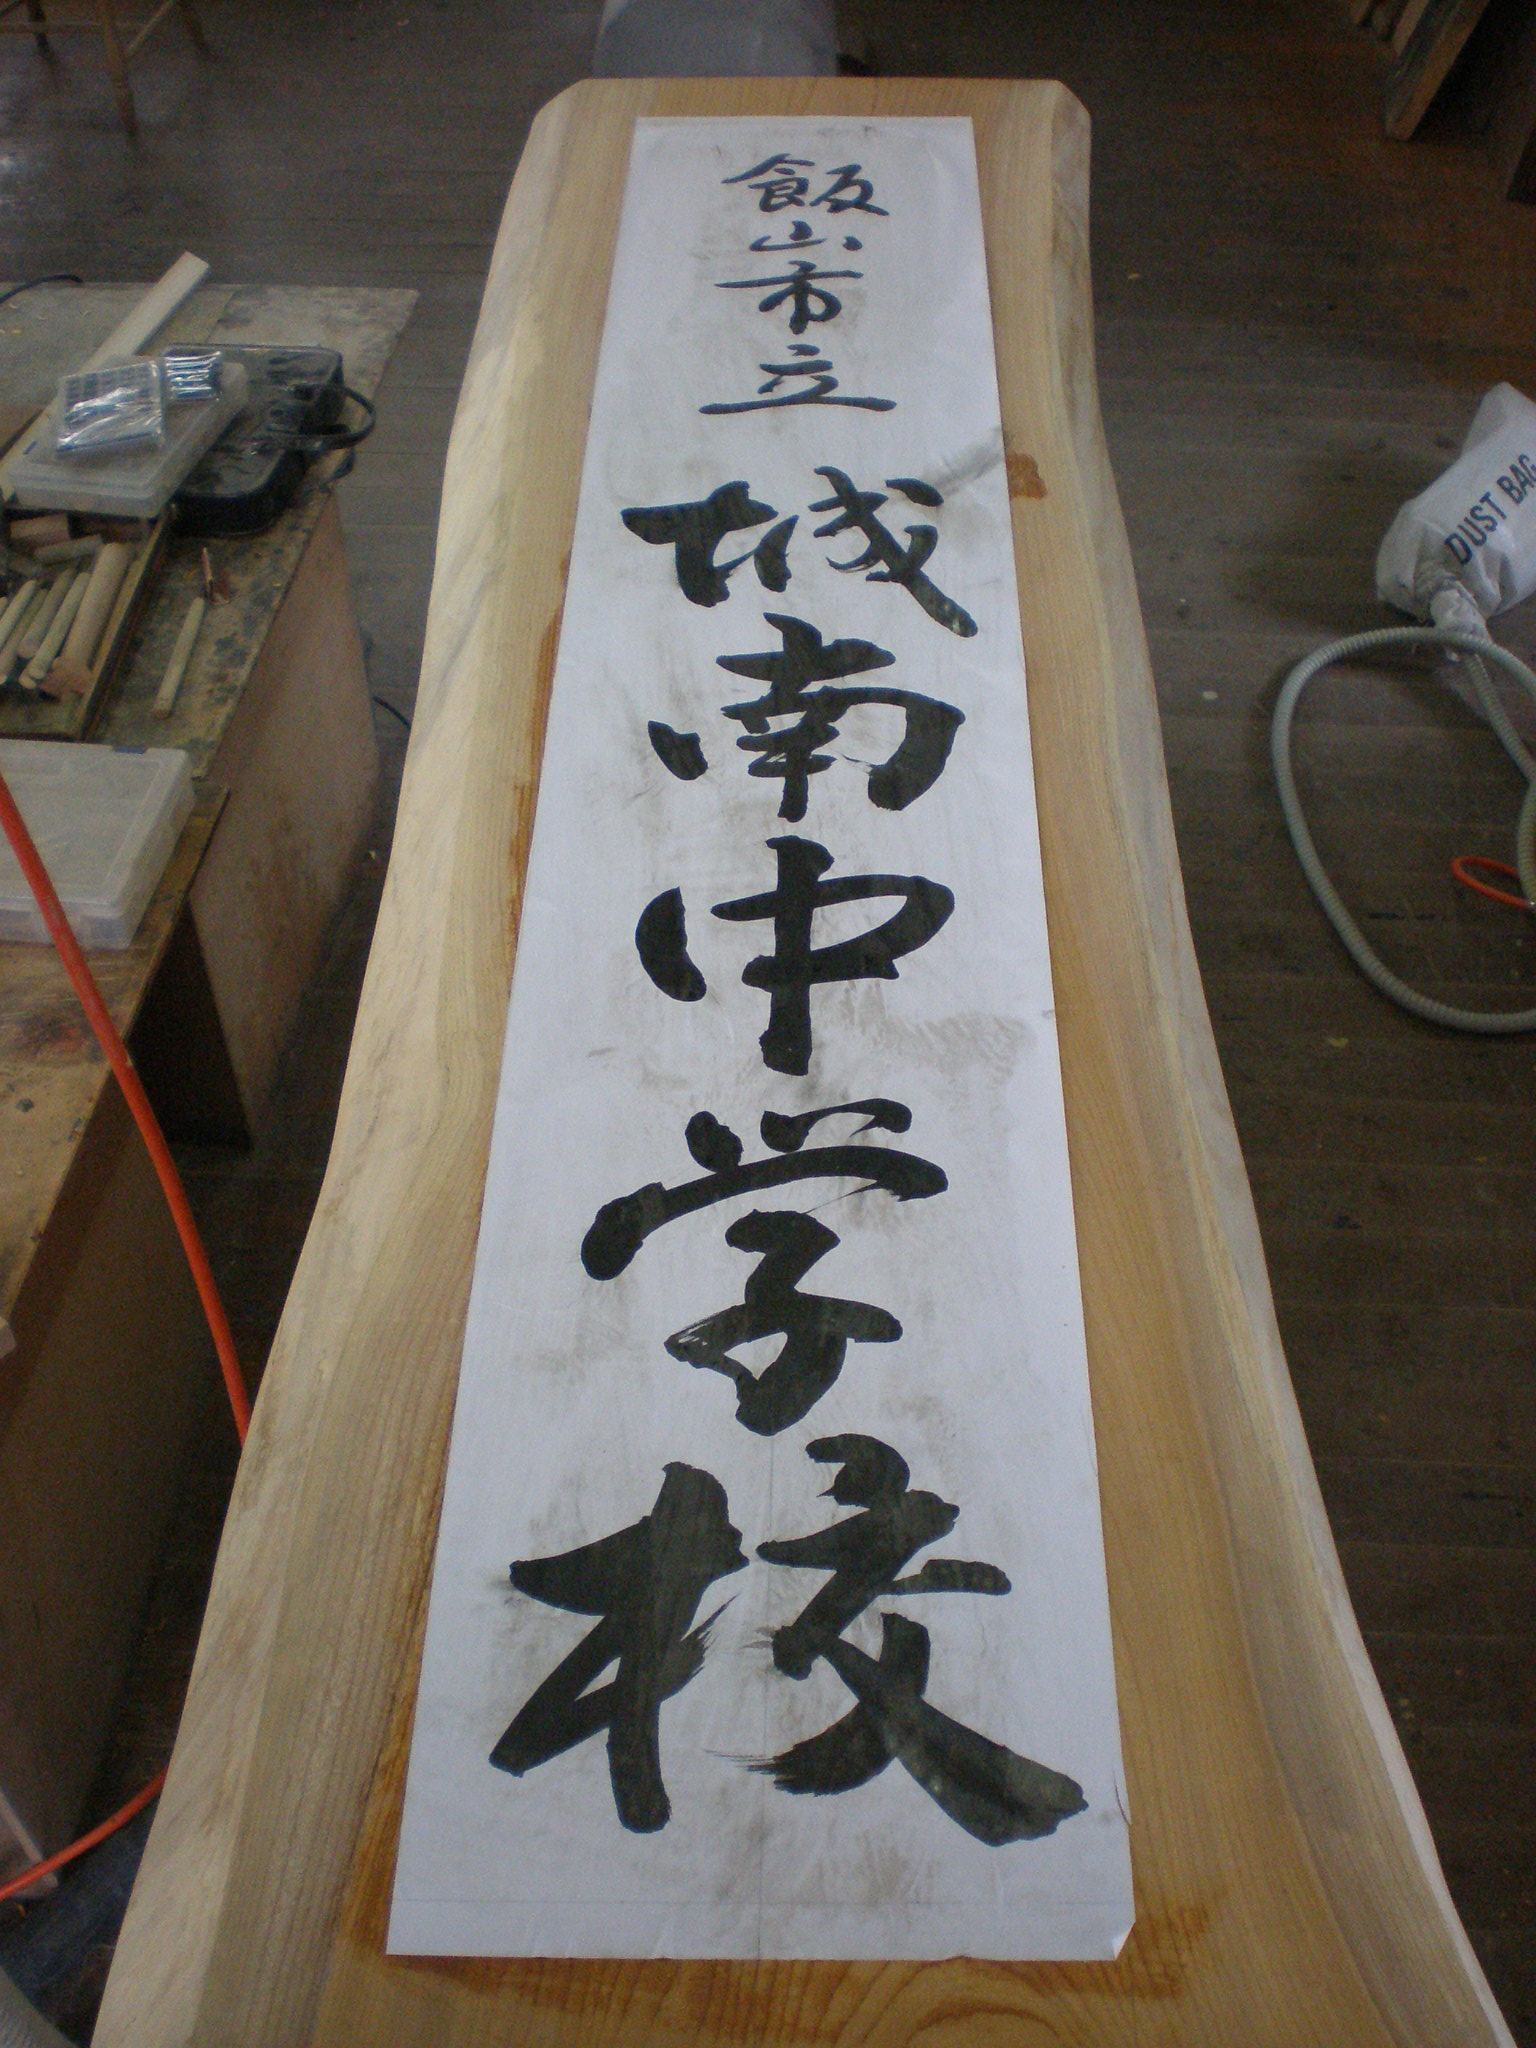 飯山市立 城南中学校
DUST BAG